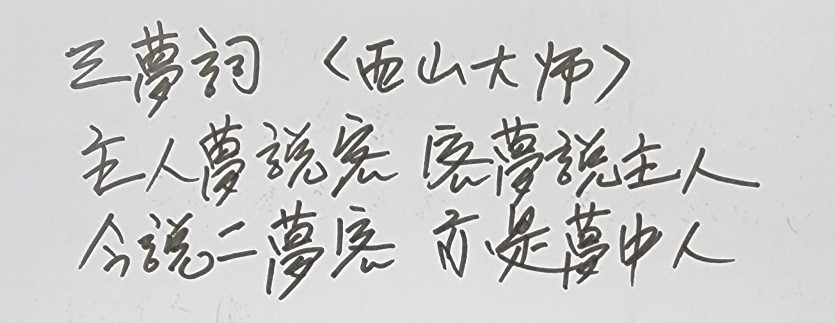 三夢詞 〈西山大师〉
主人夢說客 客夢說主人
今說二夢客 亦是夢中人